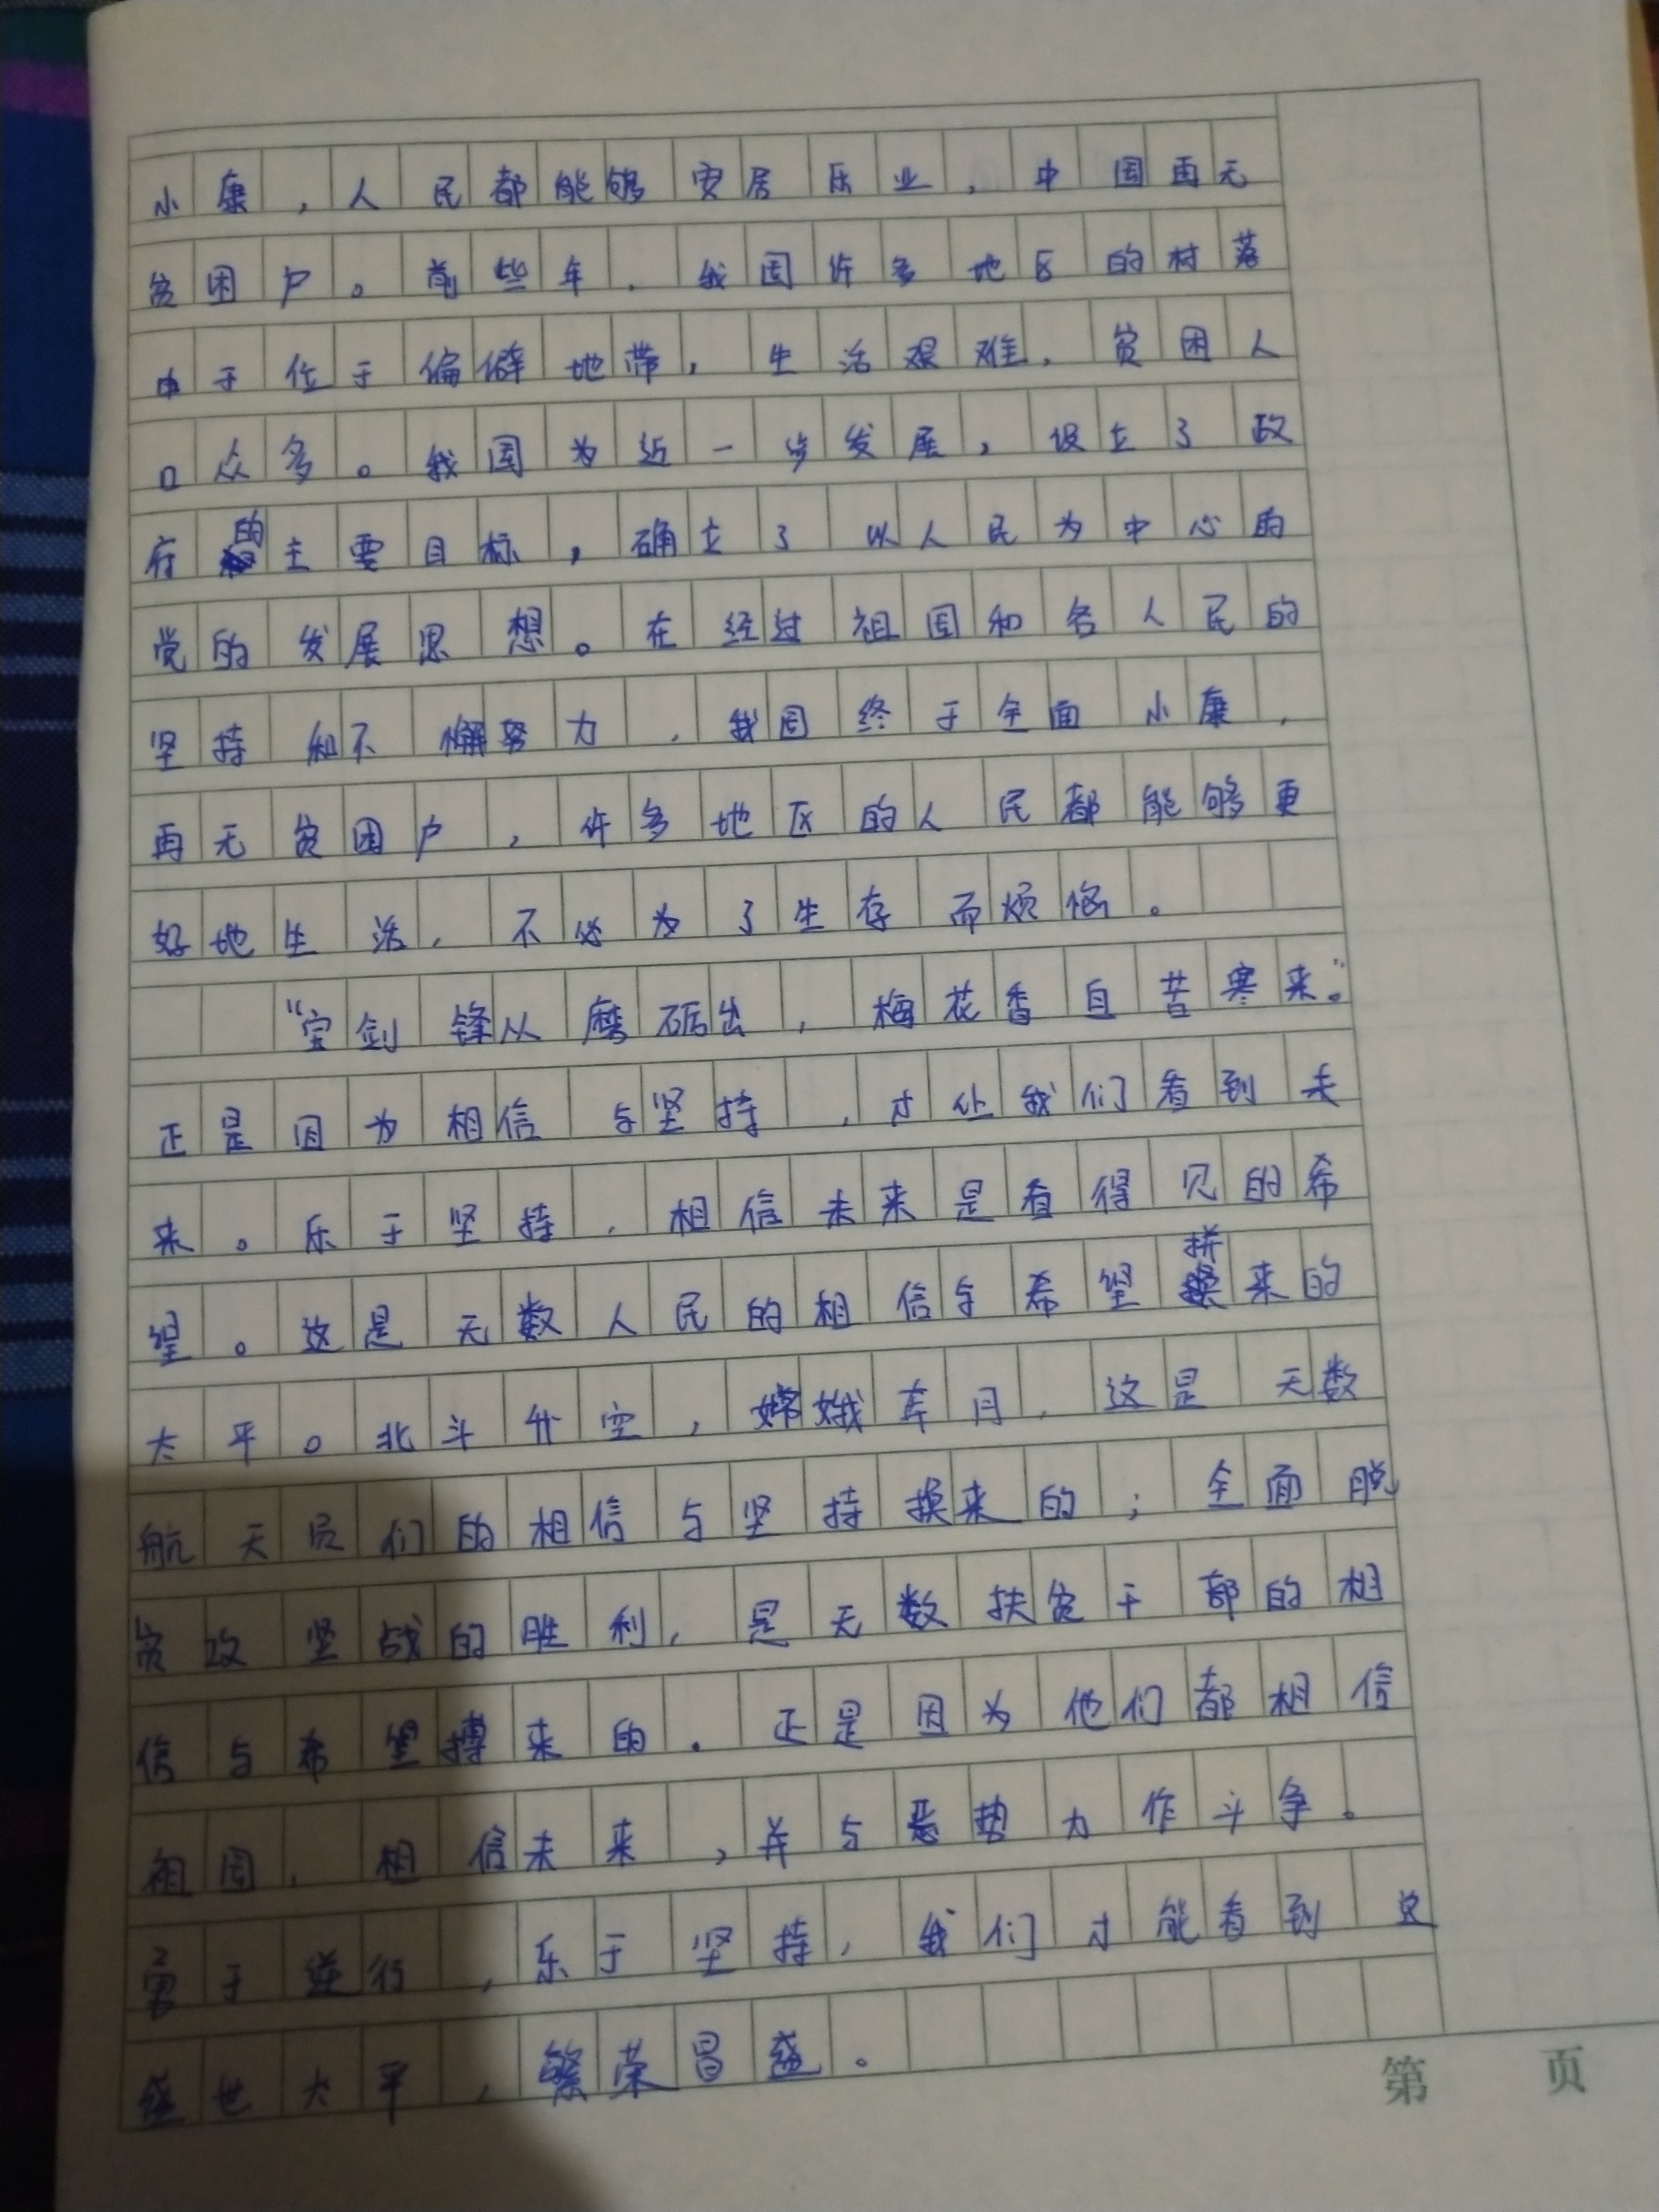 小康，人民都能够安居乐业，中国再无
贫困户。前些年，我国许多地区的村落
由于位于偏僻地带，生活艰难，贫困人
口众多。我国为近一步发展，设立了政
府的主要目标，确立了以人民为中心的
党的发展思想。在经过祖国和各人民的
坚持和不懈努力，我国终于全面小康，
再无贫困户，许多地区的人民都能够更
好地生活，不必为了生存而烦恼。
“宝剑锋从磨砺出，梅花香自苦寒来。”
正是因为相信与坚持，才让我们看到未
来。乐于坚持，相信未来是看得见的希
望。这是无数人民的相信与希望拼来的
太平。北斗升空，嫦娥奔月，这是无数
航天员们的相信与坚持换来的；全面脱
贫攻坚战的胜利，是无数扶贫干部的相
信与希望搏来的。正是因为他们都相信
祖国，相信未来，并与恶势力作斗争。
勇于逆行，乐于坚持，我们才能看到这
盛世太平，繁荣昌盛。
第 页